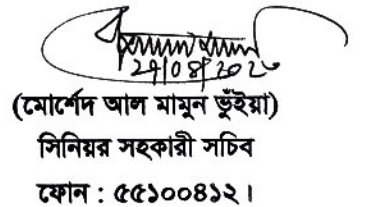 (মোর্শেদ আল মামুন ভুঁইয়া)
সিনিয়র সহকারী সচিব
ফোন : ৫৫১০০৪১২।